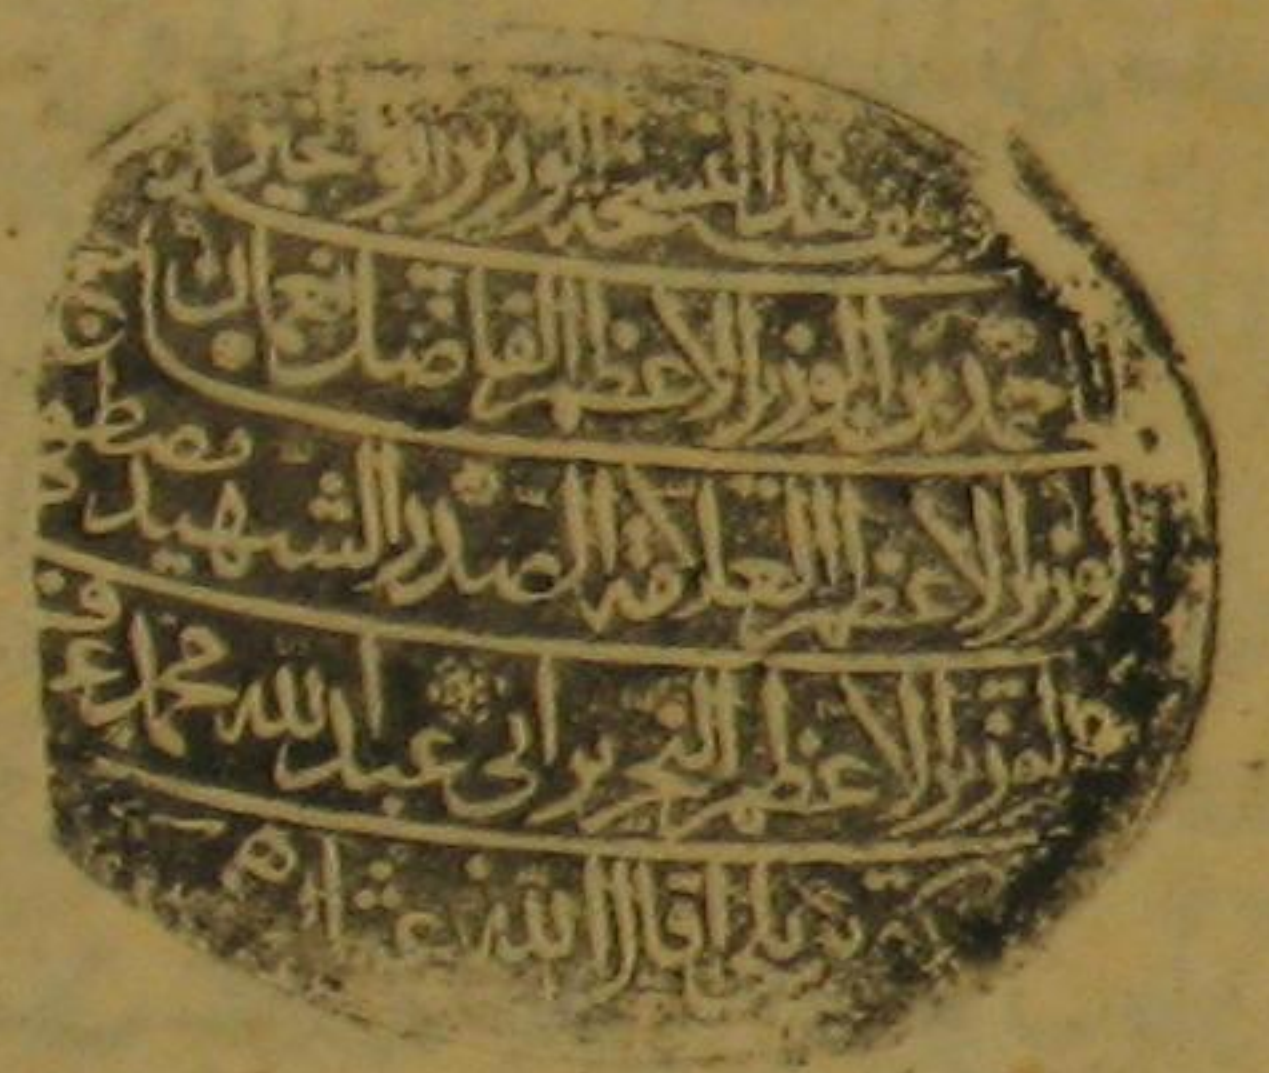 وقف النسخة الوزير ابو الخير
احمد بن الوزير الاعظم الفاضل نعمان بن
الوزير الاعظم العلامة الصدر الشهيد مصطفى
الوزير الاعظم النحرير ابى عبد الله محمد عرف
بكوبريلى اقال الله عثارهم